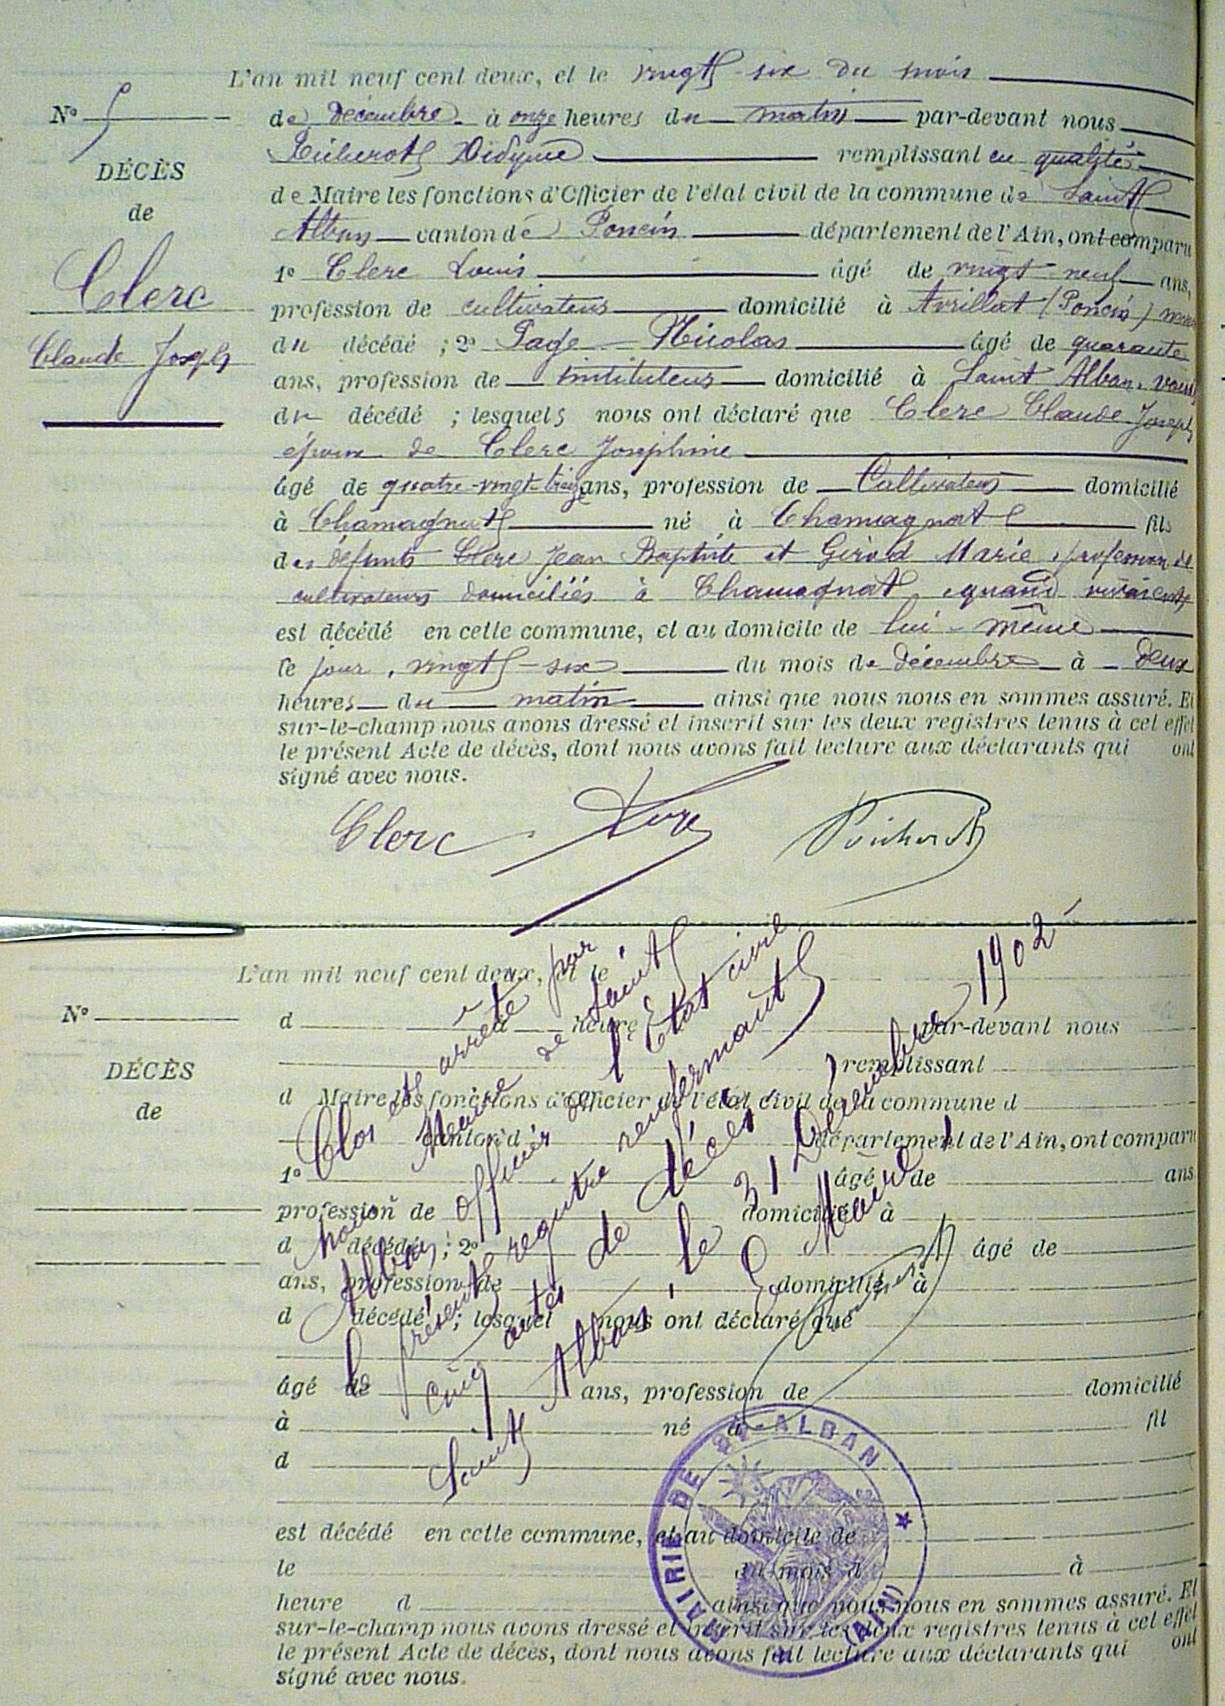 L'an mil neuf cent deux, et le vingt-six du mois
N° 5
de décembre à onze heures du matin par-devant nous
Didyme remplissant en qualité
DÉCÈS
de Maire les fonctions d'Officier de l'état civil de la commune de Saint
de
Alban canton de Poncin département de l'Ain, ont comparu
Clerc
Claude Joseph
1° Clerc Louis âgé de vingt-neuf ans,
profession de cultivateur domicilié à Avrillat (Poncin)
du décédé ; 2° Page Nicolas âgé de quarante
ans, profession de instituteur domicilié à Saint Alban, voisin
du décédé ; lesquels nous ont déclaré que Clerc Claude Joseph
époux de Clerc Joséphine
âgé de quatre-vingt-treize ans, profession de Cultivateur domicilié
à Chamagnat né à Chamagnat fils
des défunts Clerc Jean Baptiste et Girod Marie, profession de
cultivateurs domiciliés à Chamagnat, quand vivaient
est décédé en cette commune, et au domicile de lui-même
le jour, vingt-six du mois de décembre à deux
heures du matin ainsi que nous nous en sommes assuré. Et
sur-le-champ nous avons dressé et inscrit sur les deux registres tenus à cet effet
le présent Acte de décès, dont nous avons fait lecture aux déclarants qui ont
signé avec nous.
Clerc Page
L'an mil neuf cent deux, et le
N°
d à heure par-devant nous
remplissant
DÉCÈS
d Maire les fonctions d'Officier de l'état civil de la commune d
de
canton d département de l'Ain, ont comparu
1° âgé de ans
profession de domicilié à
d décédé ; 2° âgé de
ans, profession de domicilié à
d décédé ; lesquel nous ont déclaré que
âgé de ans, profession de domicilié
à né à fil
d
est décédé en cette commune, et au domicile de
le du mois d à
heure d ainsi que nous nous en sommes assuré. Et
sur-le-champ nous avons dressé et inscrit sur les deux registres tenus à cet effet
le présent Acte de décès, dont nous avons fait lecture aux déclarants qui ont
signé avec nous.
Clos et arrêté par
Nous Maire de Saint
Alban, officier de l'Etat civil
le présent registre renfermant
cinq actes de décès
Saint Alban, le 31 Décembre 1902
Le Maire,
MAIRIE DE ST-ALBAN
(AIN)